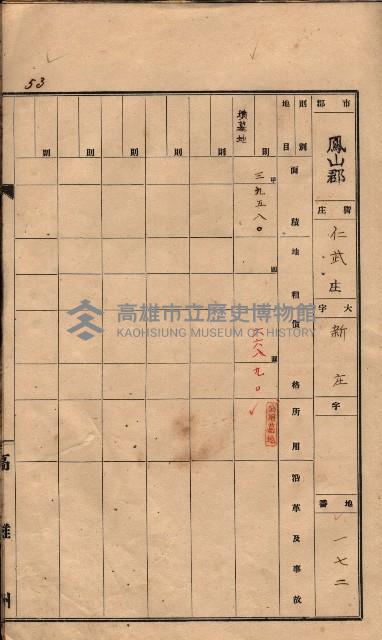 53
市郡 鳳山郡
街庄 仁武庄
大字 新庄
字
地番 一七二
則別
地目
面積
地租
價格
所用
沿革及事故
則 則 則 則 則 則
墳墓地
甲 三九五八〇
圓
圓 六六八九〇
公用墓地
高雄州
高雄市立歷史博物館
KAOHSIUNG MUSEUM OF HISTORY